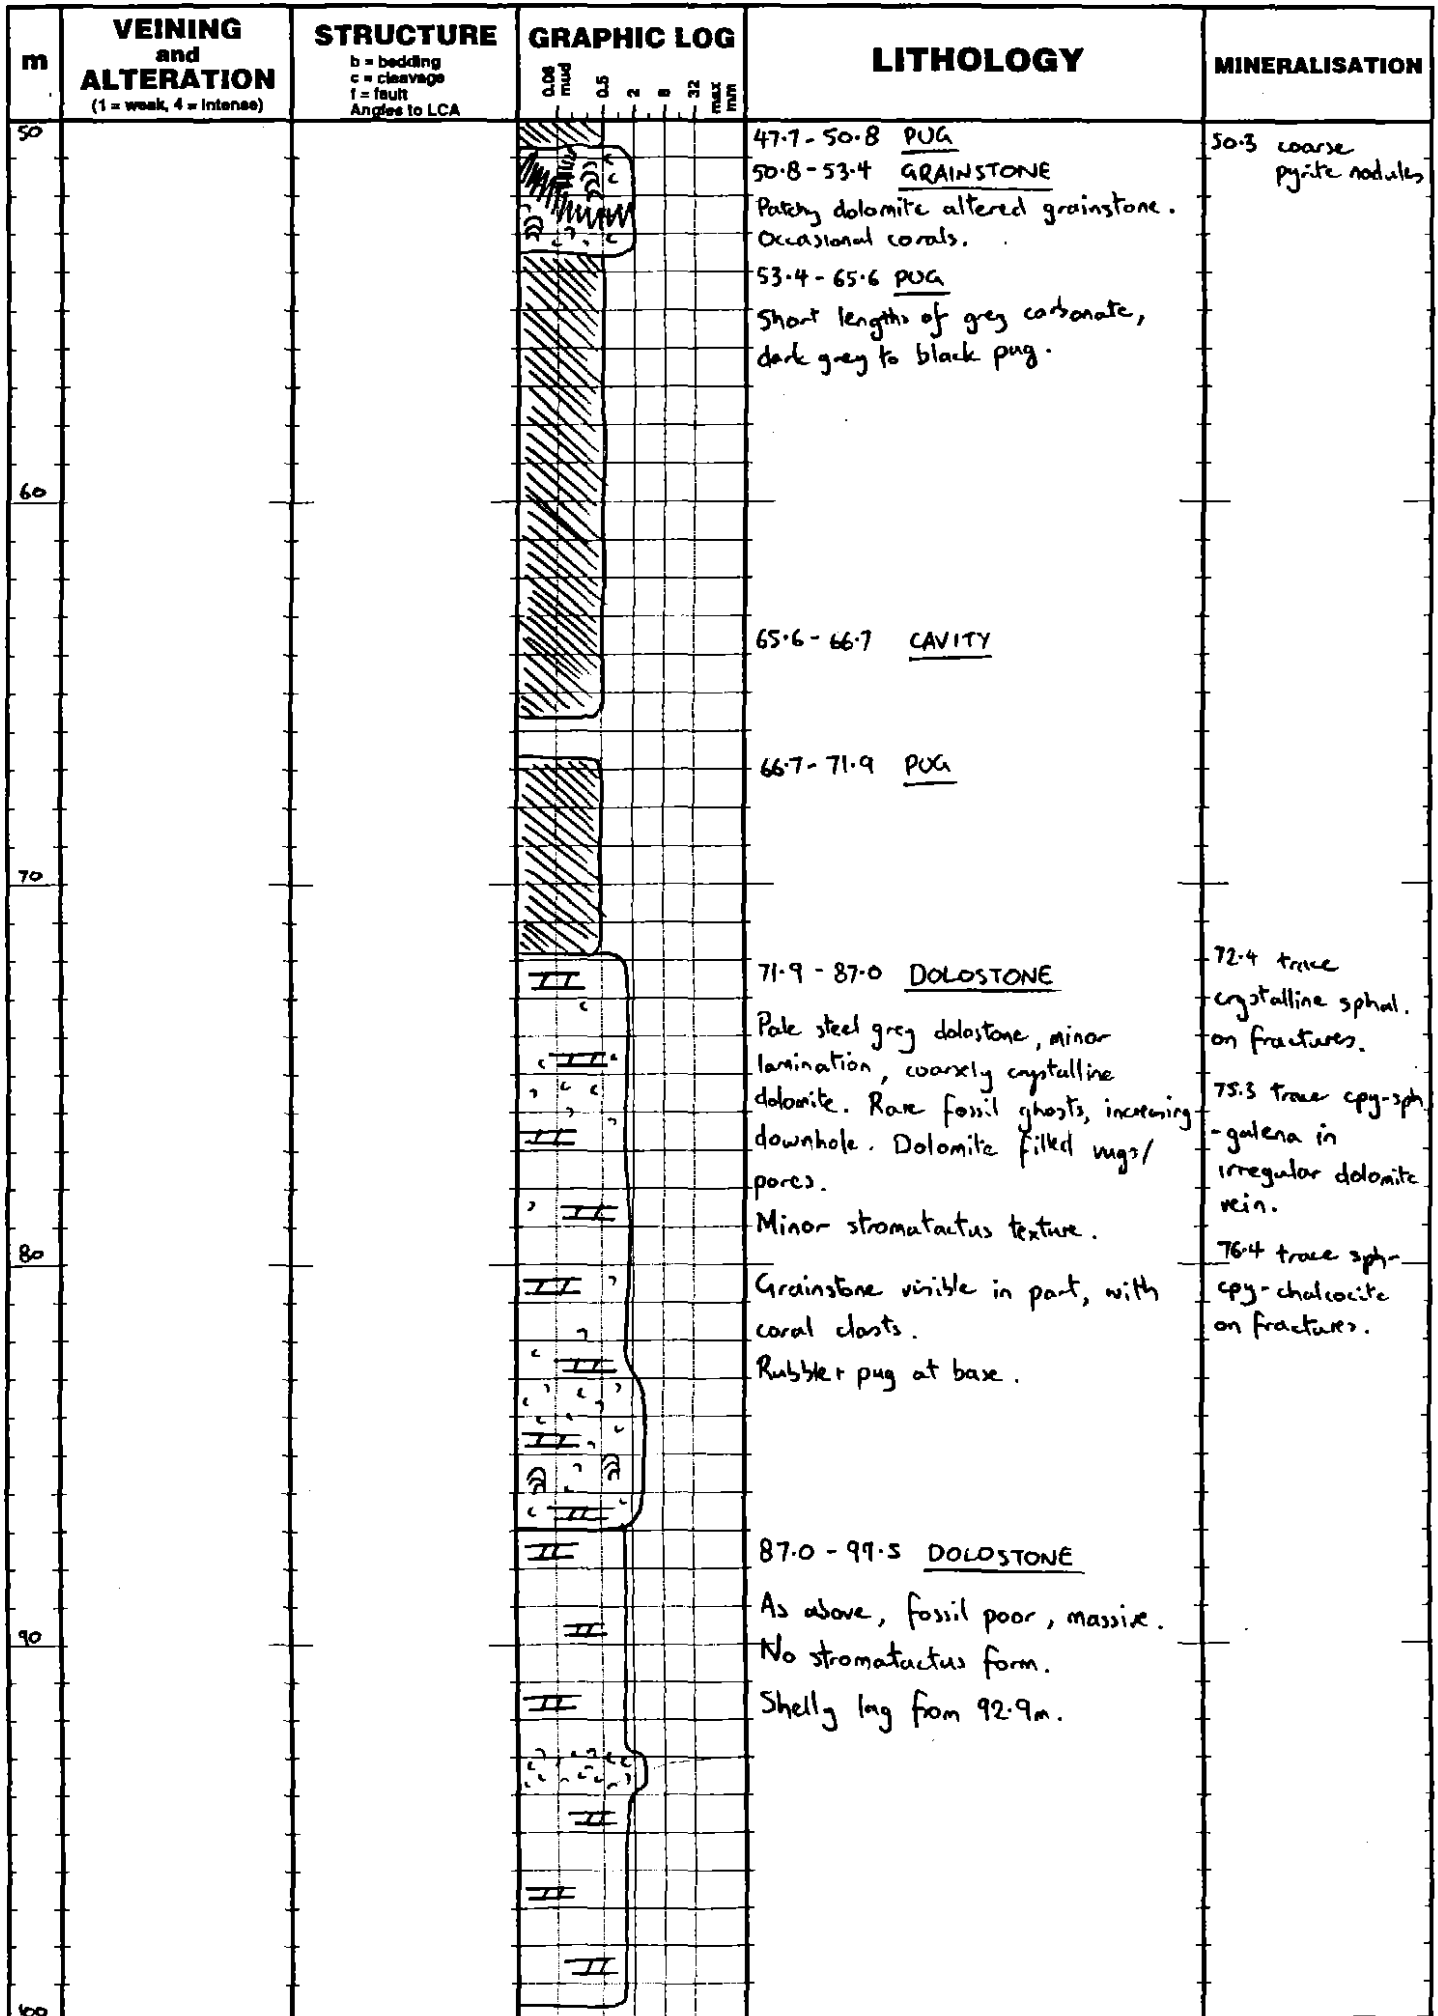 m
VEINING
and
ALTERATION
(1 = weak, 4 = intense)
STRUCTURE
b = bedding
c = cleavage
f = fault
Angles to LCA
GRAPHIC LOG
0.06
mud
0.5
2
8
32
max
mm
LITHOLOGY
MINERALISATION
50
60
70
80
90
100
47.7 - 50.8 PUG
50.8 - 53.4 GRAINSTONE
Patchy dolomite altered grainstone.
Occasional corals.
53.4 - 65.6 PUG
Short lengths of grey carbonate,
dark grey to black pug.
65.6 - 66.7 CAVITY
66.7 - 71.9 PUG
71.9 - 87.0 DOLOSTONE
Pale steel grey dolostone, minor
lamination, coarsely crystalline
dolomite. Rare fossil ghosts, increasing
downhole. Dolomite filled vugs/
pores.
Minor stromatactus texture.
Grainstone visible in part, with
coral clasts.
Rubble + pug at base.
87.0 - 99.5 DOLOSTONE
As above, fossil poor, massive.
No stromatactus form.
Shelly lag from 92.9m.
50.3 coarse
pyrite nodules
72.4 trace
crystalline sphal.
on fractures.
75.3 trace cpy-sph
-galena in
irregular dolomite
vein.
76.4 trace sph-
cpy-chalcocite
on fractures.